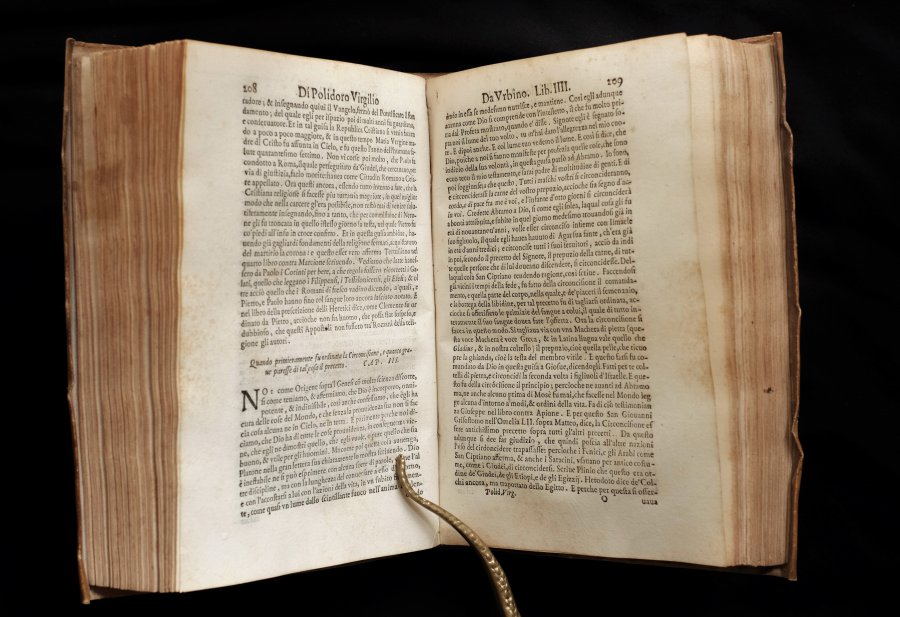 208 Di Polidoro Virgilio
tadore; & insegnando quiui il Vangelo, fermò del Pontificato il fon
damento; del quale egli per ispatio poi di molti anni fu guardiano,
e conseruatore. Et in tal guisa la Republica Cristiana si venia facen
do a poco a poco maggiore, & in questo tempo Maria Vergine ma-
dre di Cristo fu assunta in Cielo, e fu questo l'anno dell'humana sa-
lute quarantesimo settimo. Non vi corse poi molto, che Paolo fu
condotto a Roma, il quale perseguitato da' Giudei, che cercauano, per
via di giustitia, farlo morire
te appellato. Ora questi ancora, essendo tutto intento a fare, che la
Cristiana religione si facesse più tuttauia maggiore, in quel miglior
modo che nella carcere gl'era possibile, non restò mai di venire salu-
tiferamente insegnando, fino a tanto, che per commissione di Nero-
ne gli fu troncata in quello istesso giorno la testa, nel quale Pietro fu
co' piedi all'insù in croce confitto. Et in questa guisa ambidue, ha-
uendo già gagliardi fondamenti della religione fermati,
del martirio la corona: e questo esser vero afferma Tertulliano nel
quarto libro contro Marcione scriuendo. Vediamo che latte haues-
sero da Paolo i Corinti per bere, a che regola fussero ricorretti i Ga-
lati, quello che leggano i Filippensi, i Tessalonicensi, gli Efesi; & ol
tre acciò quello che i Romani di fresco vadino dicendo, a' quali, e
Pietro, e Paolo hanno fino col sangue loro ancora lasciato notato. E
nel libro della prescrizione delli Heretici dice, come Clemente fu or
dinato da Pietro, acciocche non sia huomo, che possa star sospeso, e
dubbioso, che questi Apostoli non fussero tra' Romani della reli-
gione gli autori.
Quando primieramente fu ordinata la Circoncisione, e quanto gra-
ue paresse di tal cosa il precetto. CAP. III.
NOI come Origene sopra'l Genesi cō molto scienza discorre,
si come teniamo, & affermiamo, che Dio è incorporeo, onni-
potente, & indiuisibile, così anche confessiamo, che egli ha
cura delle cose del Mondo, e che senza la prouidenza sua non si fac
cia cosa alcuna ne in Cielo, ne in terra. E
ciamo, che Dio ha di tutte le cose prouidenza,
ne, che egli ne dimostri quello, che egli vuole, e tutto quello che sia
buono, & vtile per gli huomini. Ma come poi questa cosa auuenga,
Platone nella gran lettera sua chiaramente lo mostra scriuendo. Dio
è ineffabile ne si può esprimere con alcuna sorte di parole, come l'al
tre discipline, ma con la lunghezza del conuersare a esso
e con l'accostarsi a lui con l'azzioni della vita, in vn subito
te, come quasi vn lume dallo scintillante fuoco nell'anima
Da Vrbino. Lib. IIII. 209
do in essa se medesimo nutrisce, e mantiene. Così egli adunque
ancora come Dio si comprende con l'intelletto, sì che fu molto pri-
ma dal Profeta mostrato, quando e' disse. Signore egli è segnato so-
pra noi il lume del tuo volto, tu m'hai dato l'allegrezza nel mio cuo-
re. E di poi anche. E col lume tuo vedremo il lume. E così si dice, che
Dio, poiche a noi si fanno manifeste per quello le quelle cose, che sono
indizio della sua volontà, in questa guisa parlò ad Abramo. Io sono,
ecco teco il mio testamento, e sarai padre di moltitudine di genti. E di
poi soggiunse a che questo, Tutti i maschi vostri si circoncideranno,
e circonciderassi la carne del vostro prepuzio, acciocche sia segno d'ac-
cordo, e di pace fra me e voi, e l'infante d'otto giorni si circonciderà
in voi. Credette Abramo a Dio, si come egli soleua, laqual cosa gli fu
ancora attribuita, e subito in quel giorno medesimo trouandosi già in
età di nouantanoue anni, volle esser circonciso insieme con Ismaele
suo figliuolo, il quale egli haueua hauuto di Agar sua fante, ch'era già
in età d'anni tredici; e circoncise tutti i suoi seruitori, acciò da indi
in poi, secondo il precetto del Signore, il prepuzio della carne, di tut-
te quelle persone che di lui doueano discendere, si circoncidesse. Del-
la qual cosa San Cipriano rendendo ragione, così scriue. Faccendosi
gli vicini i tempi della fede, fu fatto della circoncisione il comanda-
mento, e quella parte del corpo, nella quale,
e la bottega della libidine, per tal precetto fu di tagliarsi ordinata, ac-
teramente il suo sangue douea fare l'offerta. Ora la circoncisione si
faceua in questo modo. Si tagliaua via con vna Machera di pietra (que-
sta voce Machera è voce Greca, & in Latina lingua vale quello che
Gladius, & in nostra coltello) il prepuzio, cioè quella pelle, che cuo-
pre la ghianda, cioè la testa del membro virile. E questo fassi fu co-
mandato da Dio in questa guisa a Giosue, dicendogli. Fatti per te col-
telli di pietra, e circoncidi la seconda volta i figliuoli d'Israelle. E que-
sto fu della circoncisione il principio; perciocche ne auanci ad Abramo
ma, ne anche alcuno prima di Mosè fu mai, che facesse nel Mondo leg
ge alcuna d'intorno a modi, & ordini della vita. Fa di ciò testimonian
za Giuseppe nel libro contro Apione. E per questo San Giouanni
Grisostimo nell'Omelia LII. sopra Matteo, dice, la Circoncisione es
sere antichissimo precetto sopra tutti gl'altri precetti. Da questo
adunque si dee far giudizio, che quindi poscia all'altre nazioni
l'vso del circoncidere trapassasse: percioche i Fenici, e gli Arabi come
San Cipriano afferma, & anche i Saracini, seruano per antico costu-
me, come i Giudei, di circoncidersi. Scriue Plinio che questo era or-
dine de' Giudei, de gli Etiopi, e de gli Egizzij. Herodoto dice de' Col-
chi ancora, ma trapportato dello Egitto. E perche per questa si osser-
Polid. Virg. O uaua